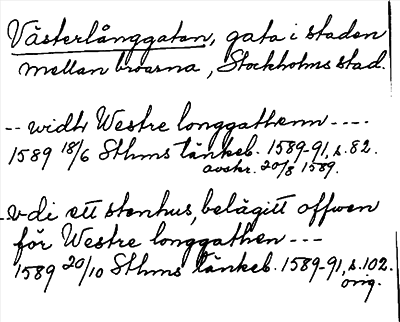 Västerlånggatan, gata i staden
mellan broarna, Stockholms stad.
-- widh Westre longgathenn ----
1589 18/6 Sthms tänkeb. 1589-91, s. 82.
avskr. 20/8 1589.
- vdi ett stenhus, belägitt offwen
för Westre longgathen ---
1589 20/10 Sthms tänkeb. 1589-91, s. 102.
orig.